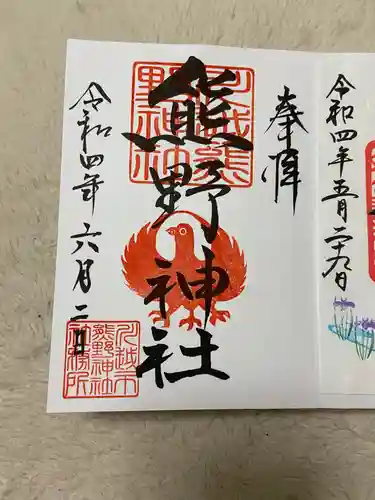 令和四年五月二十九日
奉拝
熊野神社
川越熊野神社
令和四年六月二日
川越市
熊野神社
社務所